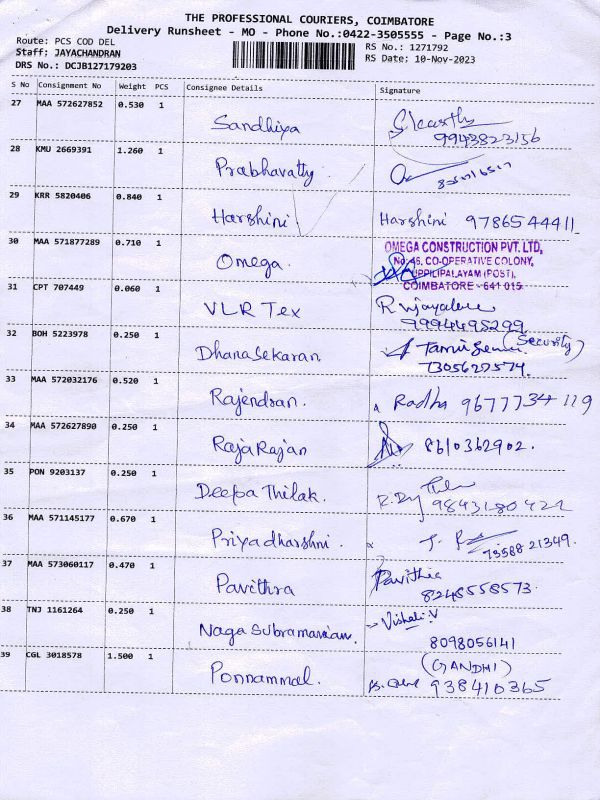 THE PROFESSIONAL COURIERS, COIMBATORE
Delivery Runsheet - MO - Phone No.:0422-3505555 - Page No.:3
Route: PCS COD DEL
Staff: JAYACHANDRAN
DRS No.: DCJB127179203
RS No.: 1271792
RS Date: 10-Nov-2023
S No Consignment No Weight PCS Consignee Details Signature
27 MAA 572627852 0.530 1 Sandhiya
9943823156
28 KMU 2669391 1.260 1 Prabhavatty
29 KRR 5820406 0.840 1 Harshini. Harshini 9786544411
30 MAA 571877289 0.710 1 Omega.
OMEGA CONSTRUCTION PVT. LTD,
No:46, CO-OPERATIVE COLONY,
UPPILIPALAYAM (POST),
COIMBATORE - 641 015
31 CPT 707449 0.060 1 VLR Tex
9994495299
32 BOH 5223978 0.250 1 Dhanasekaran (Security)
7305627574.
33 MAA 572032176 0.520 1 Rajendran. Radha 9677734119
34 MAA 572627890 0.250 1 RajaRajan 8610362902.
35 PON 9203137 0.250 1 Deepa Thilak.
9843180422
36 MAA 571145177 0.670 1 Priyadharshni.
7558821349.
37 MAA 573060117 0.470 1 Pavithra Pavithra
8248558573.
38 TNJ 1161264 0.250 1 Naga Subramanian. Vishali.V
8098056141
39 CGL 3018578 1.500 1 Ponnammal. (GANDHI)
938410365